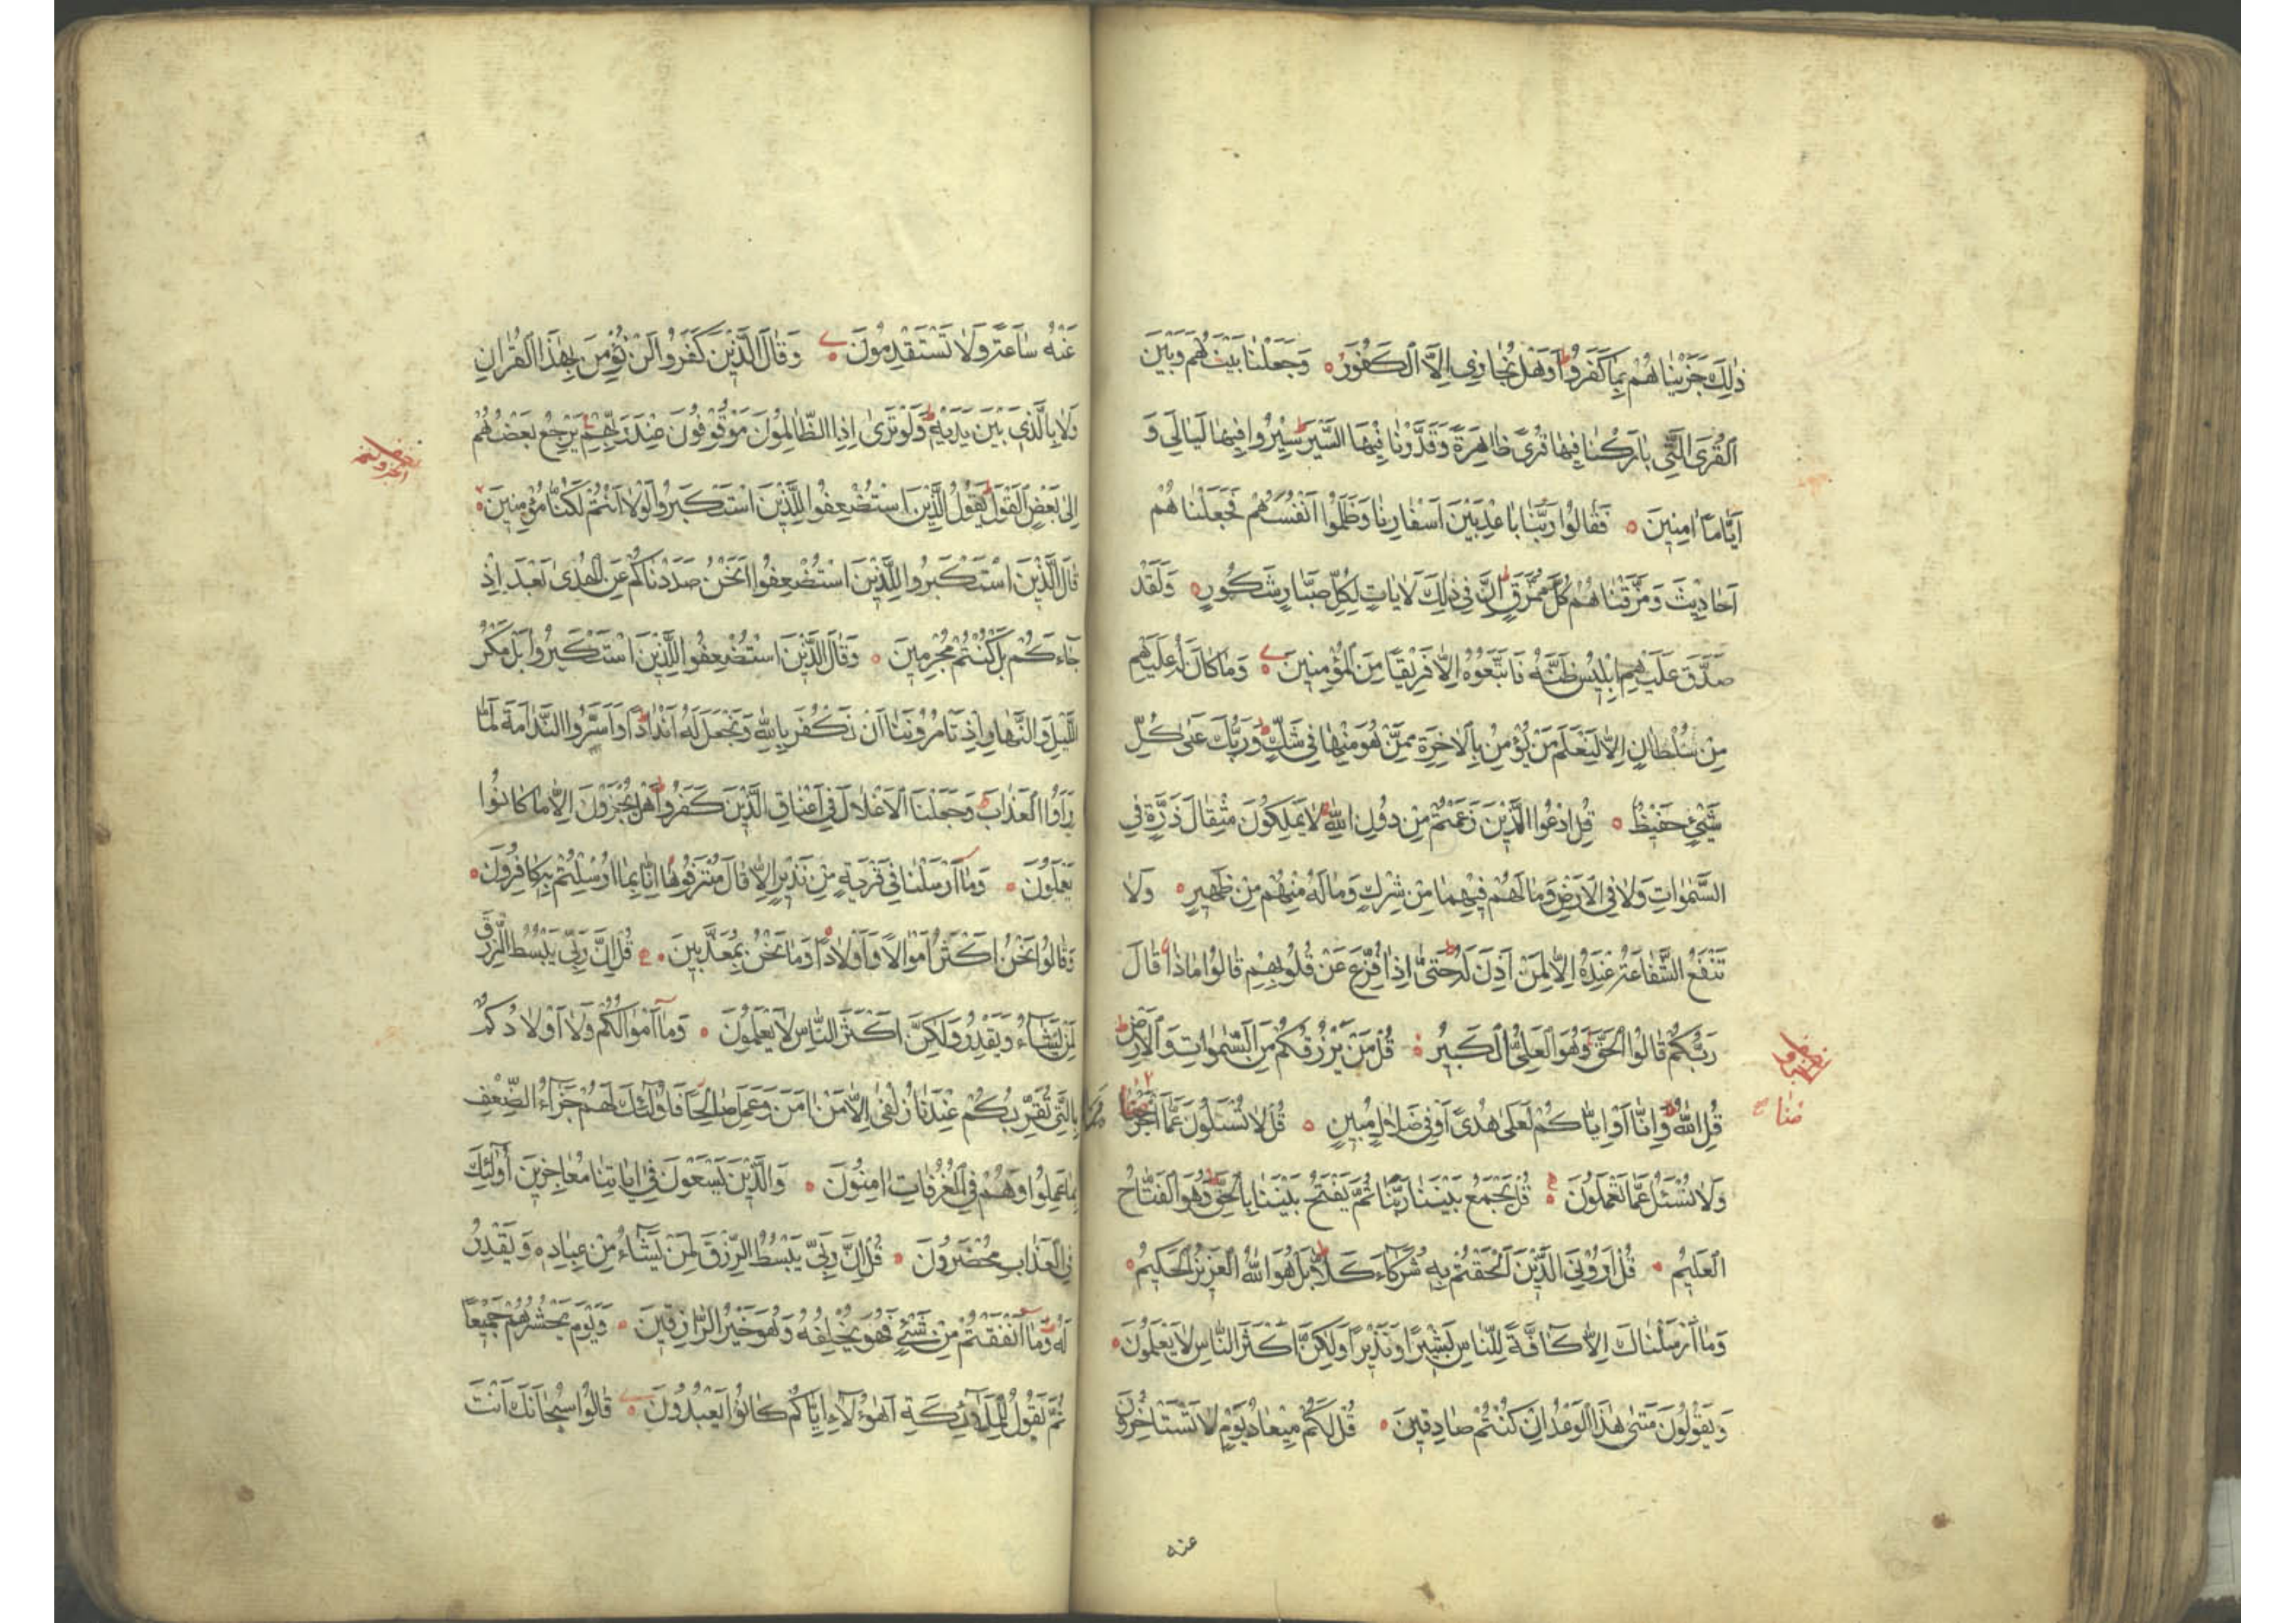 ذٰلِكَ جَزَيْنَاهُمْ بِمَا كَفَرُوا وَهَلْ نُجَازِي اِلَّا الْكَفُورَ وَجَعَلْنَا بَيْنَهُمْ وَبَيْنَ
الْقُرَى الَّتِي بَارَكْنَا فِيهَا قُرًى ظَاهِرَةً وَقَدَّرْنَا فِيهَا السَّيْرَ سِيرُوا فِيهَا لَيَالِيَ وَ
اَيَّامًا اٰمِنِينَ فَقَالُوا رَبَّنَا بَاعِدْ بَيْنَ اَسْفَارِنَا وَظَلَمُوا اَنْفُسَهُمْ فَجَعَلْنَاهُمْ
اَحَادِيثَ وَمَزَّقْنَاهُمْ كُلَّ مُمَزَّقٍ اِنَّ فِي ذٰلِكَ لَاٰيَاتٍ لِكُلِّ صَبَّارٍ شَكُورٍ وَلَقَدْ
صَدَّقَ عَلَيْهِمْ اِبْلِيسُ ظَنَّهُ فَاتَّبَعُوهُ اِلَّا فَرِيقًا مِنَ الْمُؤْمِنِينَ وَمَا كَانَ لَهُ عَلَيْهِمْ
مِنْ سُلْطَانٍ اِلَّا لِنَعْلَمَ مَنْ يُؤْمِنُ بِالْاٰخِرَةِ مِمَّنْ هُوَ مِنْهَا فِي شَكٍّ وَرَبُّكَ عَلٰى كُلِّ
شَيْءٍ حَفِيظٌ قُلِ ادْعُوا الَّذِينَ زَعَمْتُمْ مِنْ دُونِ اللّٰهِ لَا يَمْلِكُونَ مِثْقَالَ ذَرَّةٍ فِي
السَّمٰوَاتِ وَلَا فِي الْاَرْضِ وَمَا لَهُمْ فِيهِمَا مِنْ شِرْكٍ وَمَا لَهُ مِنْهُمْ مِنْ ظَهِيرٍ وَلَا
تَنْفَعُ الشَّفَاعَةُ عِنْدَهُ اِلَّا لِمَنْ اَذِنَ لَهُ حَتّٰى اِذَا فُزِّعَ عَنْ قُلُوبِهِمْ قَالُوا مَاذَا قَالَ
رَبُّكُمْ قَالُوا الْحَقَّ وَهُوَ الْعَلِيُّ الْكَبِيرُ قُلْ مَنْ يَرْزُقُكُمْ مِنَ السَّمٰوَاتِ وَالْاَرْضِ
قُلِ اللّٰهُ وَاِنَّا اَوْ اِيَّاكُمْ لَعَلٰى هُدًى اَوْ فِي ضَلَالٍ مُبِينٍ قُلْ لَا تُسْئَلُونَ عَمَّا اَجْرَمْنَا
وَلَا نُسْئَلُ عَمَّا تَعْمَلُونَ قُلْ يَجْمَعُ بَيْنَنَا رَبُّنَا ثُمَّ يَفْتَحُ بَيْنَنَا بِالْحَقِّ وَهُوَ الْفَتَّاحُ
الْعَلِيمُ قُلْ اَرُونِيَ الَّذِينَ اَلْحَقْتُمْ بِهِ شُرَكَاءَ كَلَّا بَلْ هُوَ اللّٰهُ الْعَزِيزُ الْحَكِيمُ
وَمَا اَرْسَلْنَاكَ اِلَّا كَافَّةً لِلنَّاسِ بَشِيرًا وَنَذِيرًا وَلٰكِنَّ اَكْثَرَ النَّاسِ لَا يَعْلَمُونَ
وَيَقُولُونَ مَتٰى هٰذَا الْوَعْدُ اِنْ كُنْتُمْ صَادِقِينَ قُلْ لَكُمْ مِيعَادُ يَوْمٍ لَا تَسْتَاْخِرُونَ
عنه
عَنْهُ سَاعَةً وَلَا تَسْتَقْدِمُونَ وَقَالَ الَّذِينَ كَفَرُوا لَنْ نُؤْمِنَ بِهٰذَا الْقُرْاٰنِ
وَلَا بِالَّذِي بَيْنَ يَدَيْهِ وَلَوْ تَرٰى اِذِ الظَّالِمُونَ مَوْقُوفُونَ عِنْدَ رَبِّهِمْ يَرْجِعُ بَعْضُهُمْ
اِلٰى بَعْضٍ الْقَوْلَ يَقُولُ الَّذِينَ اسْتُضْعِفُوا لِلَّذِينَ اسْتَكْبَرُوا لَوْلَا اَنْتُمْ لَكُنَّا مُؤْمِنِينَ
قَالَ الَّذِينَ اسْتَكْبَرُوا لِلَّذِينَ اسْتُضْعِفُوا اَنَحْنُ صَدَدْنَاكُمْ عَنِ الْهُدٰى بَعْدَ اِذْ
جَاءَكُمْ بَلْ كُنْتُمْ مُجْرِمِينَ وَقَالَ الَّذِينَ اسْتُضْعِفُوا لِلَّذِينَ اسْتَكْبَرُوا بَلْ مَكْرُ
اللَّيْلِ وَالنَّهَارِ اِذْ تَاْمُرُونَنَا اَنْ نَكْفُرَ بِاللّٰهِ وَنَجْعَلَ لَهُ اَنْدَادًا وَاَسَرُّوا النَّدَامَةَ لَمَّا
رَاَوُا الْعَذَابَ وَجَعَلْنَا الْاَغْلَالَ فِي اَعْنَاقِ الَّذِينَ كَفَرُوا هَلْ يُجْزَوْنَ اِلَّا مَا كَانُوا
يَعْمَلُونَ وَمَا اَرْسَلْنَا فِي قَرْيَةٍ مِنْ نَذِيرٍ اِلَّا قَالَ مُتْرَفُوهَا اِنَّا بِمَا اُرْسِلْتُمْ بِهِ كَافِرُونَ
وَقَالُوا نَحْنُ اَكْثَرُ اَمْوَالًا وَاَوْلَادًا وَمَا نَحْنُ بِمُعَذَّبِينَ قُلْ اِنَّ رَبِّي يَبْسُطُ الرِّزْقَ
لِمَنْ يَشَاءُ وَيَقْدِرُ وَلٰكِنَّ اَكْثَرَ النَّاسِ لَا يَعْلَمُونَ وَمَا اَمْوَالُكُمْ وَلَا اَوْلَادُكُمْ
بِالَّتِي تُقَرِّبُكُمْ عِنْدَنَا زُلْفٰى اِلَّا مَنْ اٰمَنَ وَعَمِلَ صَالِحًا فَاُولٰئِكَ لَهُمْ جَزَاءُ الضِّعْفِ
بِمَا عَمِلُوا وَهُمْ فِي الْغُرُفَاتِ اٰمِنُونَ وَالَّذِينَ يَسْعَوْنَ فِي اٰيَاتِنَا مُعَاجِزِينَ اُولٰئِكَ
فِي الْعَذَابِ مُحْضَرُونَ قُلْ اِنَّ رَبِّي يَبْسُطُ الرِّزْقَ لِمَنْ يَشَاءُ مِنْ عِبَادِهِ وَيَقْدِرُ
لَهُ وَمَا اَنْفَقْتُمْ مِنْ شَيْءٍ فَهُوَ يُخْلِفُهُ وَهُوَ خَيْرُ الرَّازِقِينَ وَيَوْمَ يَحْشُرُهُمْ جَمِيعًا
ثُمَّ يَقُولُ لِلْمَلٰئِكَةِ اَهٰؤُلَاءِ اِيَّاكُمْ كَانُوا يَعْبُدُونَ قَالُوا سُبْحَانَكَ اَنْتَ